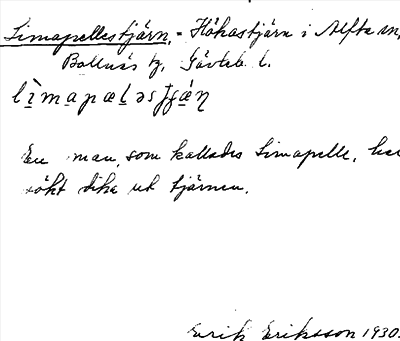 Limapellestjärn, = Håkastjärn i Alfta sn,
Bollnäs tg, Gävleb. l.
lìmapæḷəsʃǽ̣ṇ
En man, som kallades Limapelle, har
sökt dika ut tjärnen.
Erik Eriksson 1930.